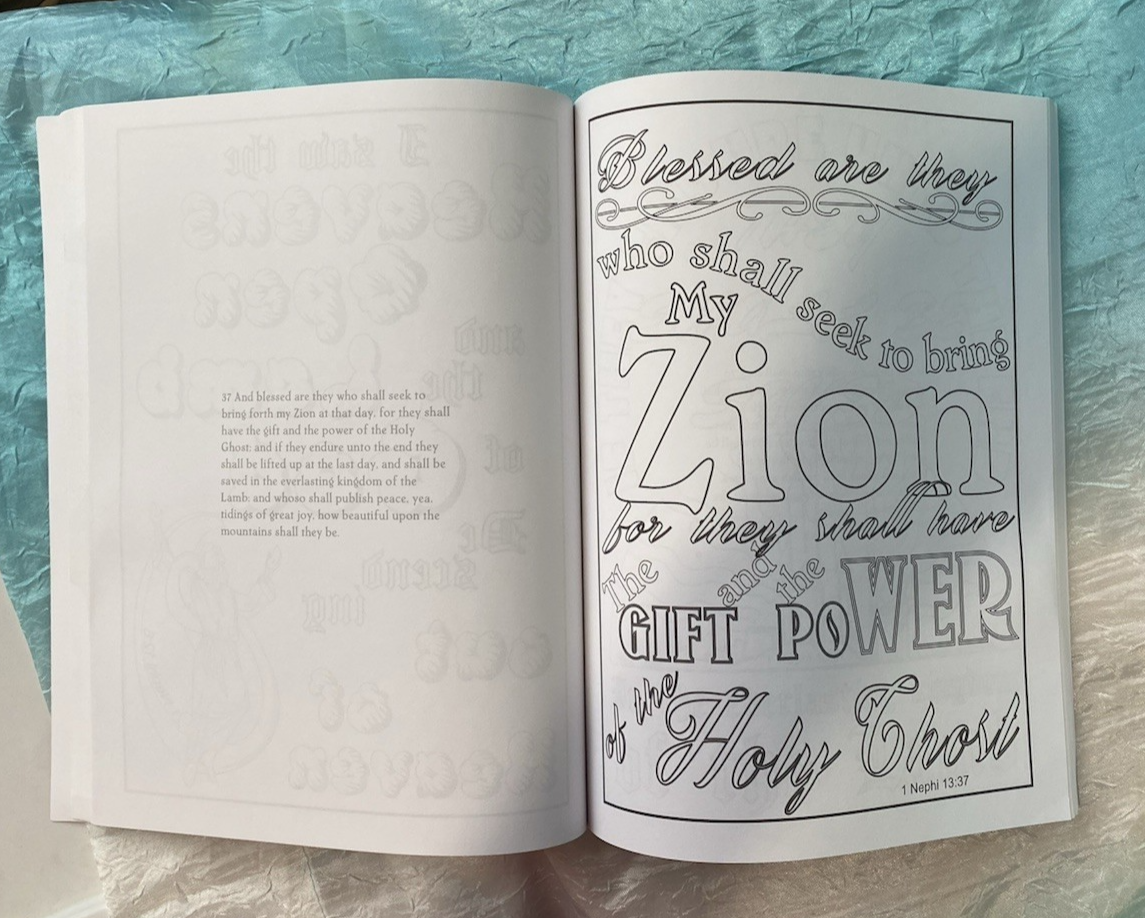 37 And blessed are they who shall seek to
bring forth my Zion at that day, for they shall
have the gift and the power of the Holy
Ghost; and if they endure unto the end they
shall be lifted up at the last day, and shall be
saved in the everlasting kingdom of the
Lamb; and whoso shall publish peace, yea,
tidings of great joy, how beautiful upon the
mountains shall they be.
I saw the
Heavens
Open
and
the Lamb
of
De
scend
ing
out
of
Heaven
Blessed are they
who shall seek to bring
My
Zion
for they shall have
The GIFT and the POWER
of the Holy Ghost
1 Nephi 13:37